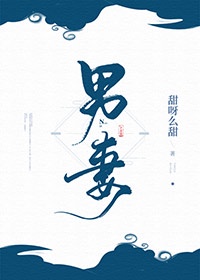 男妻
甜呀么甜
著